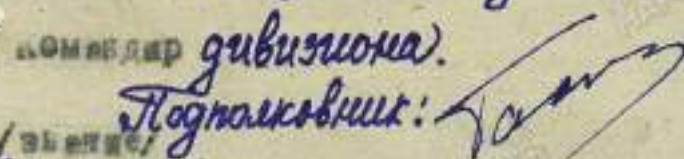 Командир дивизиона.
Подполковник:
/звание/